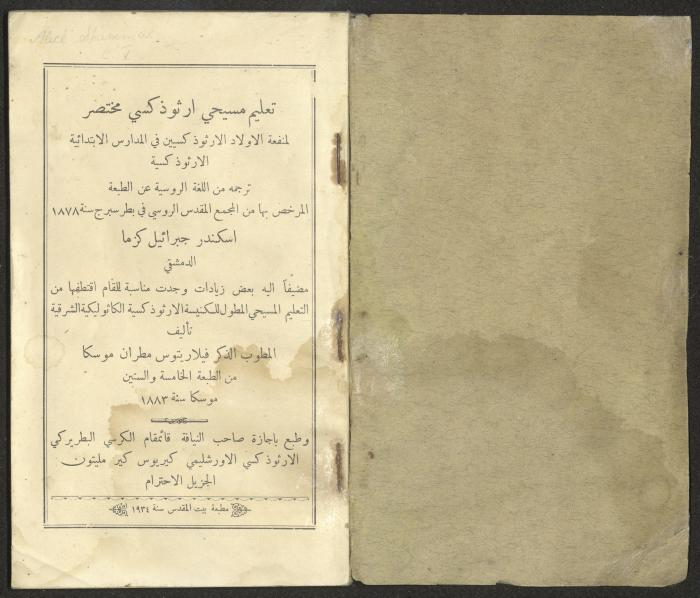 Alice Shammas
تعليم مسيحي ارثوذكسي مختصر
لمنفعة الاولاد الارثوذكسيين في المدارس الابتدائية
الارثوذكسية
ترجمه من اللغة الروسية عن الطبعة
المرخص بها من المجمع المقدس الروسي في بطرسبرج سنة ١٨٧٨
اسكندر جبرائيل كزما
الدمشقي
مضيفاً اليه بعض زيادات وجدت مناسبة للمقام اقتطفها من
التعليم المسيحي المطول للكنيسة الارثوذكسية الكاثوليكية الشرقية
تأليف
المطوب الذكر فيلاريتوس مطران موسكا
من الطبعة الخامسة والستين
موسكا سنة ١٨٨٣
وطبع باجازة صاحب النيافة قائمقام الكرسي البطريركي
الارثوذكسي الاورشليمي كيريوس كير مليتون
الجزيل الاحترام
مطبعة بيت المقدس سنة ١٩٣٤